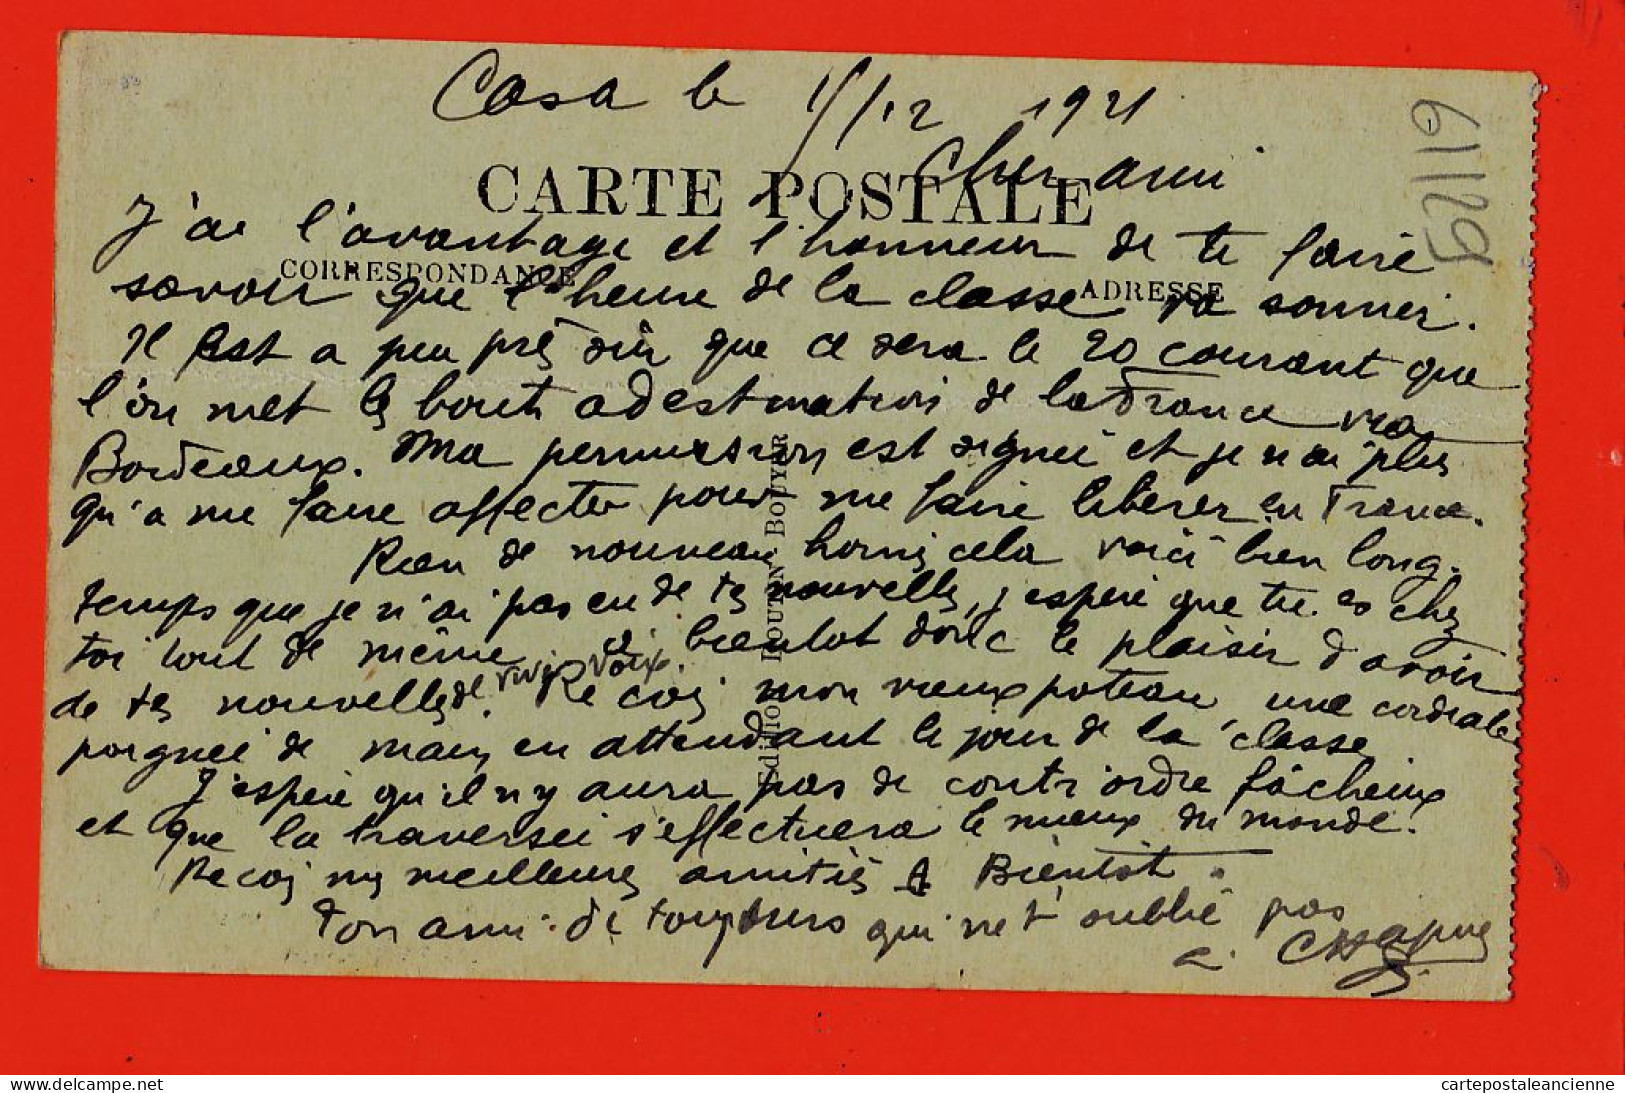 Casa le 1/12 1921
61129
Cher ami
CARTE POSTALE
J'ai l'avantage et l'honneur de te faire
CORRESPONDANCE
ADRESSE
savoir que l'heure de la classe va sonner.
Il est a peu près sûr que ce sera le 20 courant que
l'on met les bouts a destination de la France via
Bordeaux. Ma permission est signée et je n'ai plus
qu'a me faire affecter pour me faire libérer en France.
Rien de nouveau hormis cela voici bien long.
temps que je n'ai pas eu de tes nouvelles, j'espère que tu es chez
toi tout de même a bientot donc le plaisir d'avoir
de tes nouvelles de vive voix. Reçois mon vieux poteau une cordiale
poignée de main en attendant le jour de la classe
J'espère qu'il n'y aura pas de contr'ordre fâcheux
et que la traversée s'effectuera le mieux du monde.
Reçois mes meilleures amitiés A Bientôt.
Ton ami de toujours qui ne t'oublie pas
Edition Moutin Bouyer
cartepostaleancienne